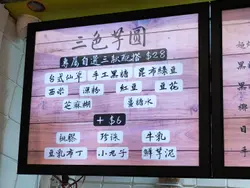 三色芋圓
專屬自選三款配搭 $28
台式仙草 手工黑糖 昆布綠豆
西米 涼粉 紅豆 豆花
芝麻糊 薑糖水
+ $6
椰糖 珍珠 牛乳
豆乳布丁 小丸子 鮮芋泥